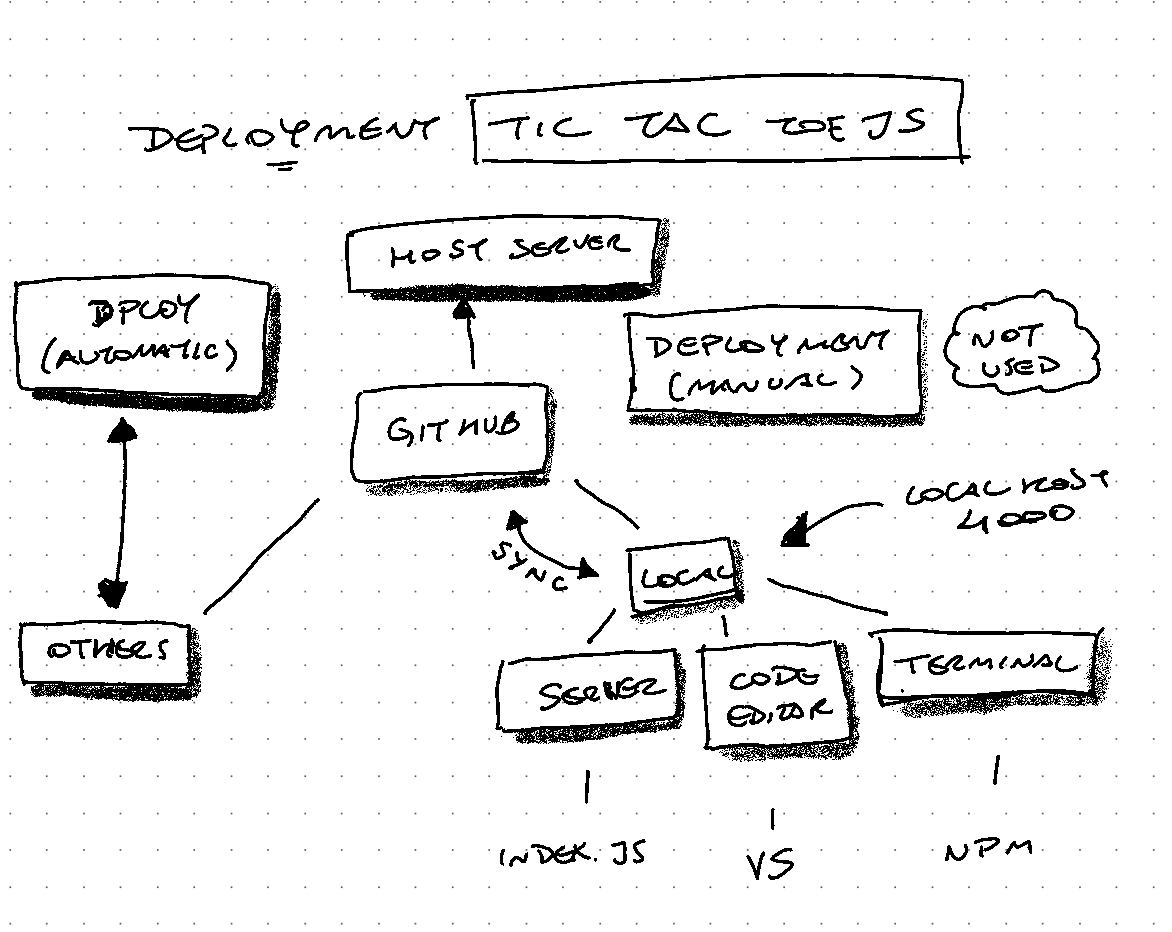 DEPLOYMENT
TIC TAC TOE JS
HOST SERVER
DPLOY
(AUTOMATIC)
DEPLOYMENT
(MANUAL)
NOT
USED
GITHUB
LOCAL HOST
4000
SYNC
LOCAL
OTHERS
SERVER
CODE
EDITOR
TERMINAL
INDEX.JS
VS
NPM